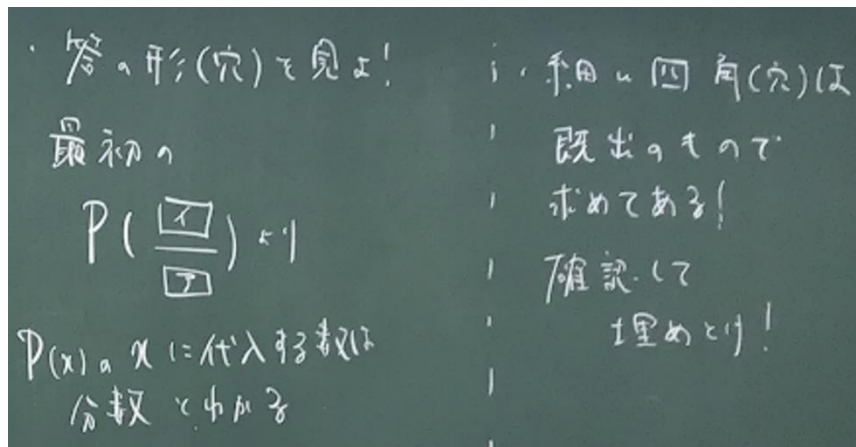 ・答の形(穴)を見よ!
最初の
P(イ/ア)より
P(x)のxに代入する数は
分数とわかる
・細い四角(穴)は
既出のもので
求めてある!
確認して
埋めとけ!